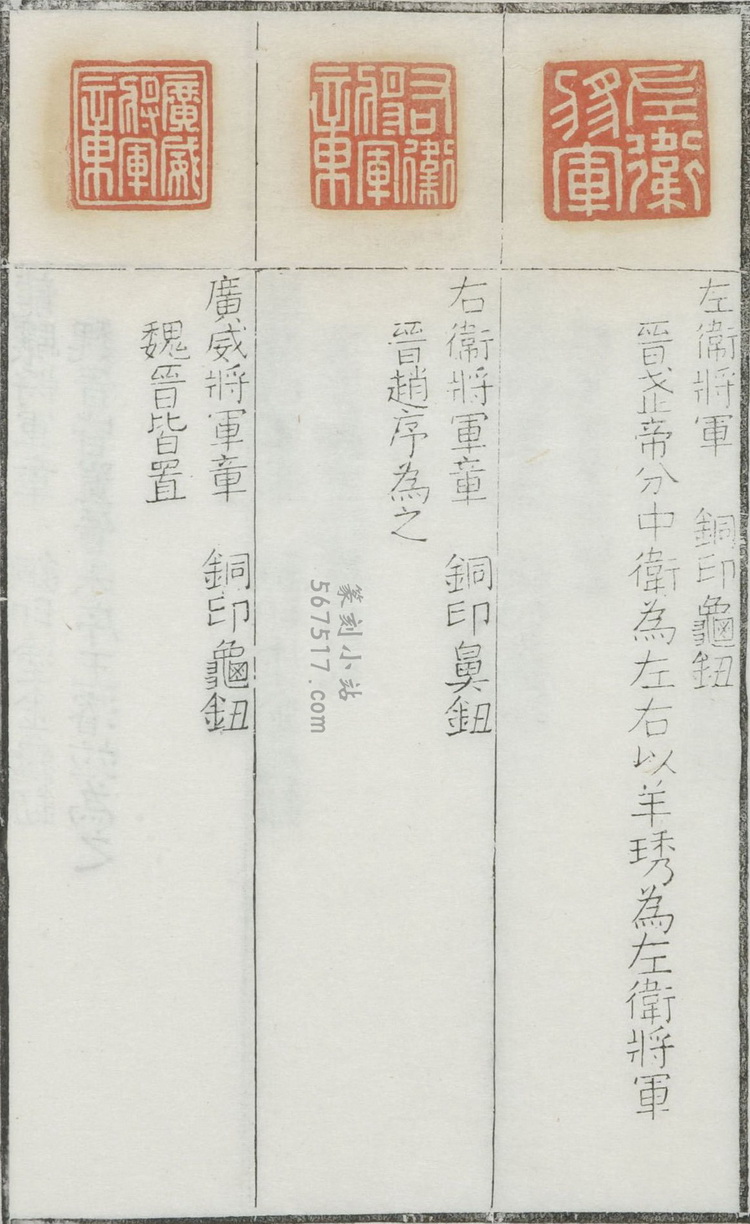 左衛將軍
左衛將軍 銅印龜鈕
晉武帝分中衛為左右以羊琇為左衛將軍
右衛將軍章
右衛將軍章 銅印鼻鈕
晉趙序為之
廣威將軍章
廣威將軍章 銅印龜鈕
魏晉皆置
篆刻小站
567517.com